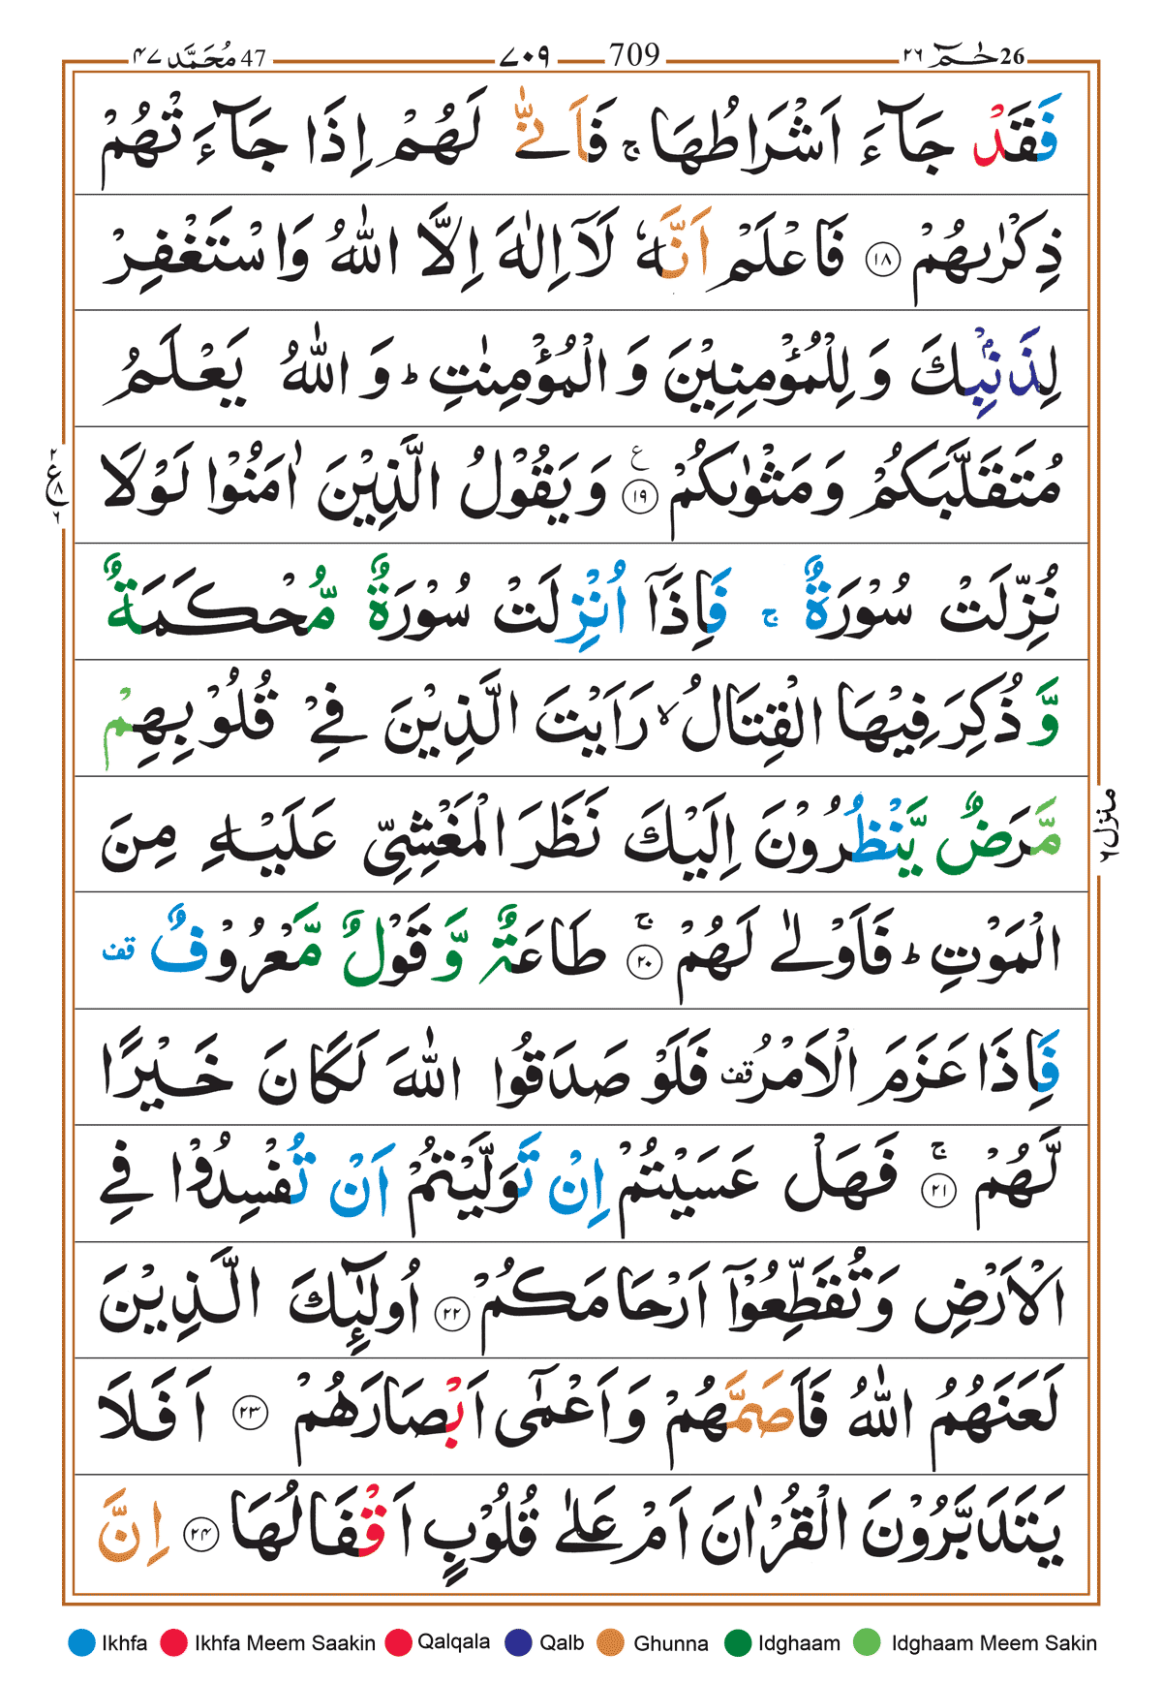 26 حٰمٓ ٢٦ 709 ٧٠٩ 47 مُحَمَّد ٤٧
فَقَدْ جَآءَ اَشْرَاطُهَا ۚ فَاَنّٰى لَهُمْ اِذَا جَآءَتْهُمْ
ذِكْرٰىهُمْ ١٨ فَاعْلَمْ اَنَّهٗ لَاۤ اِلٰهَ اِلَّا اللّٰهُ وَاسْتَغْفِرْ
لِذَنْۢبِكَ وَلِلْمُؤْمِنِيْنَ وَالْمُؤْمِنٰتِ ؕ وَاللّٰهُ يَعْلَمُ
مُتَقَلَّبَكُمْ وَمَثْوٰىكُمْ ١٩ ع وَيَقُوْلُ الَّذِيْنَ اٰمَنُوْا لَوْلَا
٢ ع ٨ ٦
نُزِّلَتْ سُوْرَةٌ ۚ فَاِذَاۤ اُنْزِلَتْ سُوْرَةٌ مُّحْكَمَةٌ
وَّذُكِرَ فِيْهَا الْقِتَالُ ۙ رَاَيْتَ الَّذِيْنَ فِيْ قُلُوْبِهِمْ
مَّرَضٌ يَّنْظُرُوْنَ اِلَيْكَ نَظَرَ الْمَغْشِيِّ عَلَيْهِ مِنَ
منزل ٦
الْمَوْتِ ؕ فَاَوْلٰى لَهُمْ ۚ ٢٠ طَاعَةٌ وَّقَوْلٌ مَّعْرُوْفٌ قف
فَاِذَا عَزَمَ الْاَمْرُ قف فَلَوْ صَدَقُوا اللّٰهَ لَكَانَ خَيْرًا
لَّهُمْ ۚ ٢١ فَهَلْ عَسَيْتُمْ اِنْ تَوَلَّيْتُمْ اَنْ تُفْسِدُوْا فِي
الْاَرْضِ وَتُقَطِّعُوْۤا اَرْحَامَكُمْ ٢٢ اُولٰٓئِكَ الَّذِيْنَ
لَعَنَهُمُ اللّٰهُ فَاَصَمَّهُمْ وَاَعْمٰۤى اَبْصَارَهُمْ ٢٣ اَفَلَا
يَتَدَبَّرُوْنَ الْقُرْاٰنَ اَمْ عَلٰى قُلُوْبٍ اَقْفَالُهَا ٢٤ اِنَّ
Ikhfa Ikhfa Meem Saakin Qalqala Qalb Ghunna Idghaam Idghaam Meem Sakin